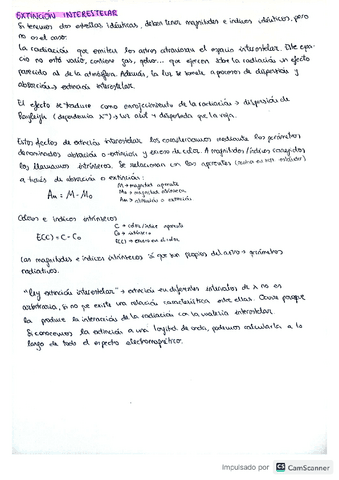 EXTINCIÓN INTERESTELAR
Si tenemos dos estrellas idénticas, deben tener magnitudes e índices idénticos, pero
no es el caso.
La radiación que emiten los astros atraviesa el espacio interestelar. Este espa-
cio no está vacío, contiene gas, polvo... que ejercen sobre la radiación un efecto
parecido al de la atmósfera. Además, la luz se somete a procesos de dispersión y
absorción → extinción interestelar.
El efecto se traduce como enrojecimiento de la radiación → dispersión de
Rayleigh (dependencia λ⁻⁴) → luz azul + dispersada que la roja.
Estos efectos de extinción interestelar los consideramos mediante los parámetros
denominados absorción o extinción y exceso de color. A magnitudes/índices corregidos
los llamamos intrínsecos. Se relacionan con los aparentes
a través de absorción o extinción:
Aₘ = M - M₀
M → magnitud aparente
M₀ → magnitud intrínseca
Aₘ → absorción o extinción
Colores e índices intrínsecos
E(C) = C - C₀
C → color/índice aparente
C₀ → intrínseco
E(C) → exceso de color
Las magnitudes e índices intrínsecos sí que son propios del astro → parámetros
radiativos.
"Ley extinción interestelar" → extinción en diferentes intervalos de λ no es
arbitraria, si no que existe una relación característica entre ellas. Ocurre porque
la produce la interacción de la radiación con la materia interestelar.
Si conocemos la extinción a una longitud de onda, podemos calcularla a lo
largo de todo el espectro electromagnético.
Impulsado por CS CamScanner